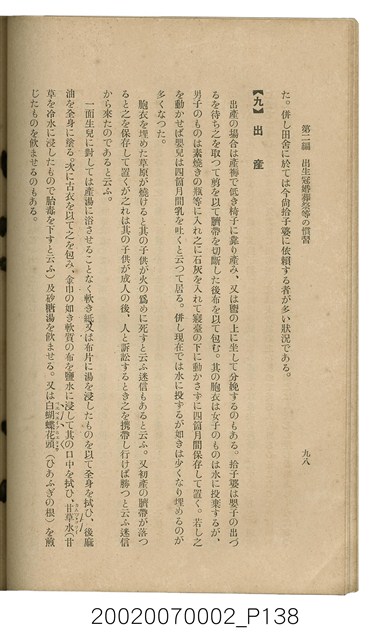 第二編　出生冠婚葬祭等の慣習
九八
た。併し田舍に於ては今尙拾子婆に依頼する者が多い狀況である。
【九】出產
出產の場合は產褥で低き椅子に靠り產み、又は甕の上に坐して分娩するのもある。拾子婆は嬰子の出づ
るを待ち之を取つて剪を以て臍帶を切斷した後布を以て包む。其の胞衣は女子のものは水に投棄するが、
男子のものは素燒きの瓶等に入れ之に石灰を入れて寢臺の下に動かさずに四箇月間保存して置く。若し之
を動かせば嬰兒は四箇月間乳を吐くと云つて居る。併し現在では水に投ずるが如きは少くなり埋めるのが
多くなつた。
胞衣を埋めた草原が燒けると其の子供が火の爲めに死すと云ふ迷信もあると云ふ。又初產の臍帶が落つ
ると之を保存して置くが之れは其の子供が成人の後、人と訴訟するとき之を携帶し行けば勝つと云ふ迷信
から來たのであると云ふ。
一面生兒に對しては產湯に浴させることなく軟き紙又は布片に湯を浸したものを以て全身を拭ひ、後麻
油を全身に塗る。次に古衣を以て之を包み、金巾の如き軟質の布を鹽水に浸して其の口中を拭ひ、甘草水（甘
草を冷水に浸したもので胎毒を下すと云ふ）及砂糖湯を飮ませる。又は白蝴蝶花頭（ひあふぎの根）を煎
じたものを飮ませるのもある。
20020070002_P138